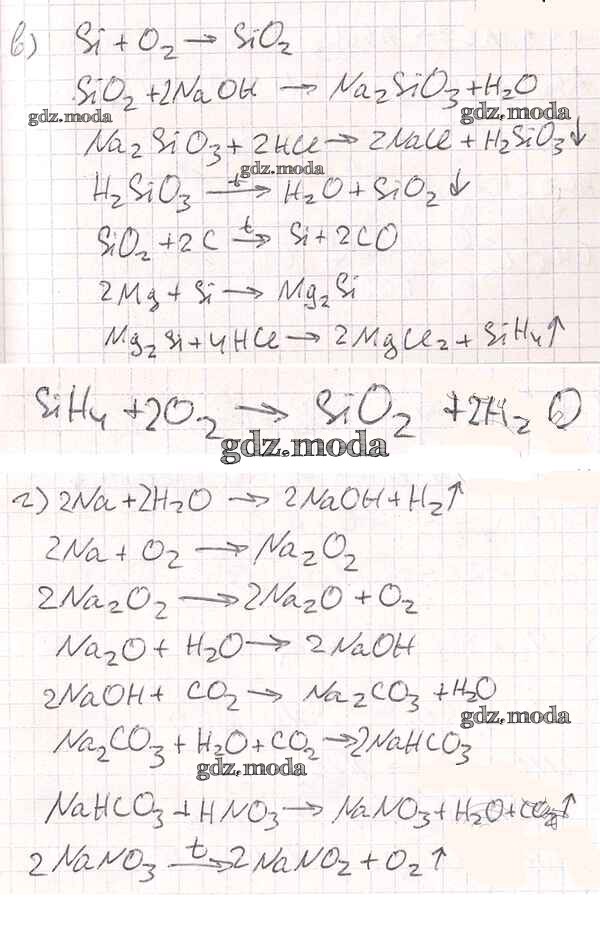 в) Si + O₂ → SiO₂
SiO₂ + 2NaOH → Na₂SiO₃ + H₂O
gdz.moda gdz.moda
Na₂SiO₃ + 2HCl → 2NaCl + H₂SiO₃↓
gdz.moda
H₂SiO₃ t→ H₂O + SiO₂↓
SiO₂ + 2C t→ Si + 2CO
2Mg + Si → Mg₂Si
Mg₂Si + 4HCl → 2MgCl₂ + SiH₄↑
SiH₄ + 2O₂ → SiO₂ + 2H₂O
gdz.moda
г) 2Na + 2H₂O → 2NaOH + H₂↑
2Na + O₂ → Na₂O₂
2Na₂O₂ → 2Na₂O + O₂
Na₂O + H₂O → 2NaOH
2NaOH + CO₂ → Na₂CO₃ + H₂O
gdz.moda
Na₂CO₃ + H₂O + CO₂ → 2NaHCO₃
gdz.moda
NaHCO₃ + HNO₃ → NaNO₃ + H₂O + CO₂↑
2NaNO₃ t→ 2NaNO₂ + O₂↑